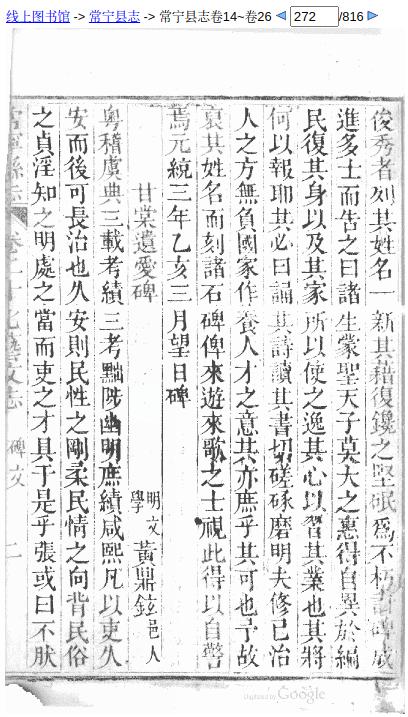 线上图书馆 -> 常宁县志 -> 常宁县志卷14~卷26 272 /816
俊秀者列其姓名一新其藉復鑱之堅珉爲不朽計碑成
進多士而告之曰諸生蒙聖天子莫大之惠得自異於編
民復其身以及其家所以使之逸其心以習其業也其將
何以報耶其必曰誦其詩讀其書切磋琢磨明夫修己治
人之方無負國家作養人才之意其亦庶乎其可也予故
裒其姓名而刻諸石碑俾來遊來歌之士視此得以自警
焉元統三年乙亥三月望日碑
甘棠遺愛碑
明文學黃鼎鉉邑人
粤稽虞典三載考績三考黜陟幽明庶績咸熙凡以吏久
安而後可長治也久安則民性之剛柔民情之向背民俗
之貞淫知之明處之當而吏之才具于是乎張或曰不朕
常寧縣志 卷二十 藝文志 碑文 二
Digitized by Google